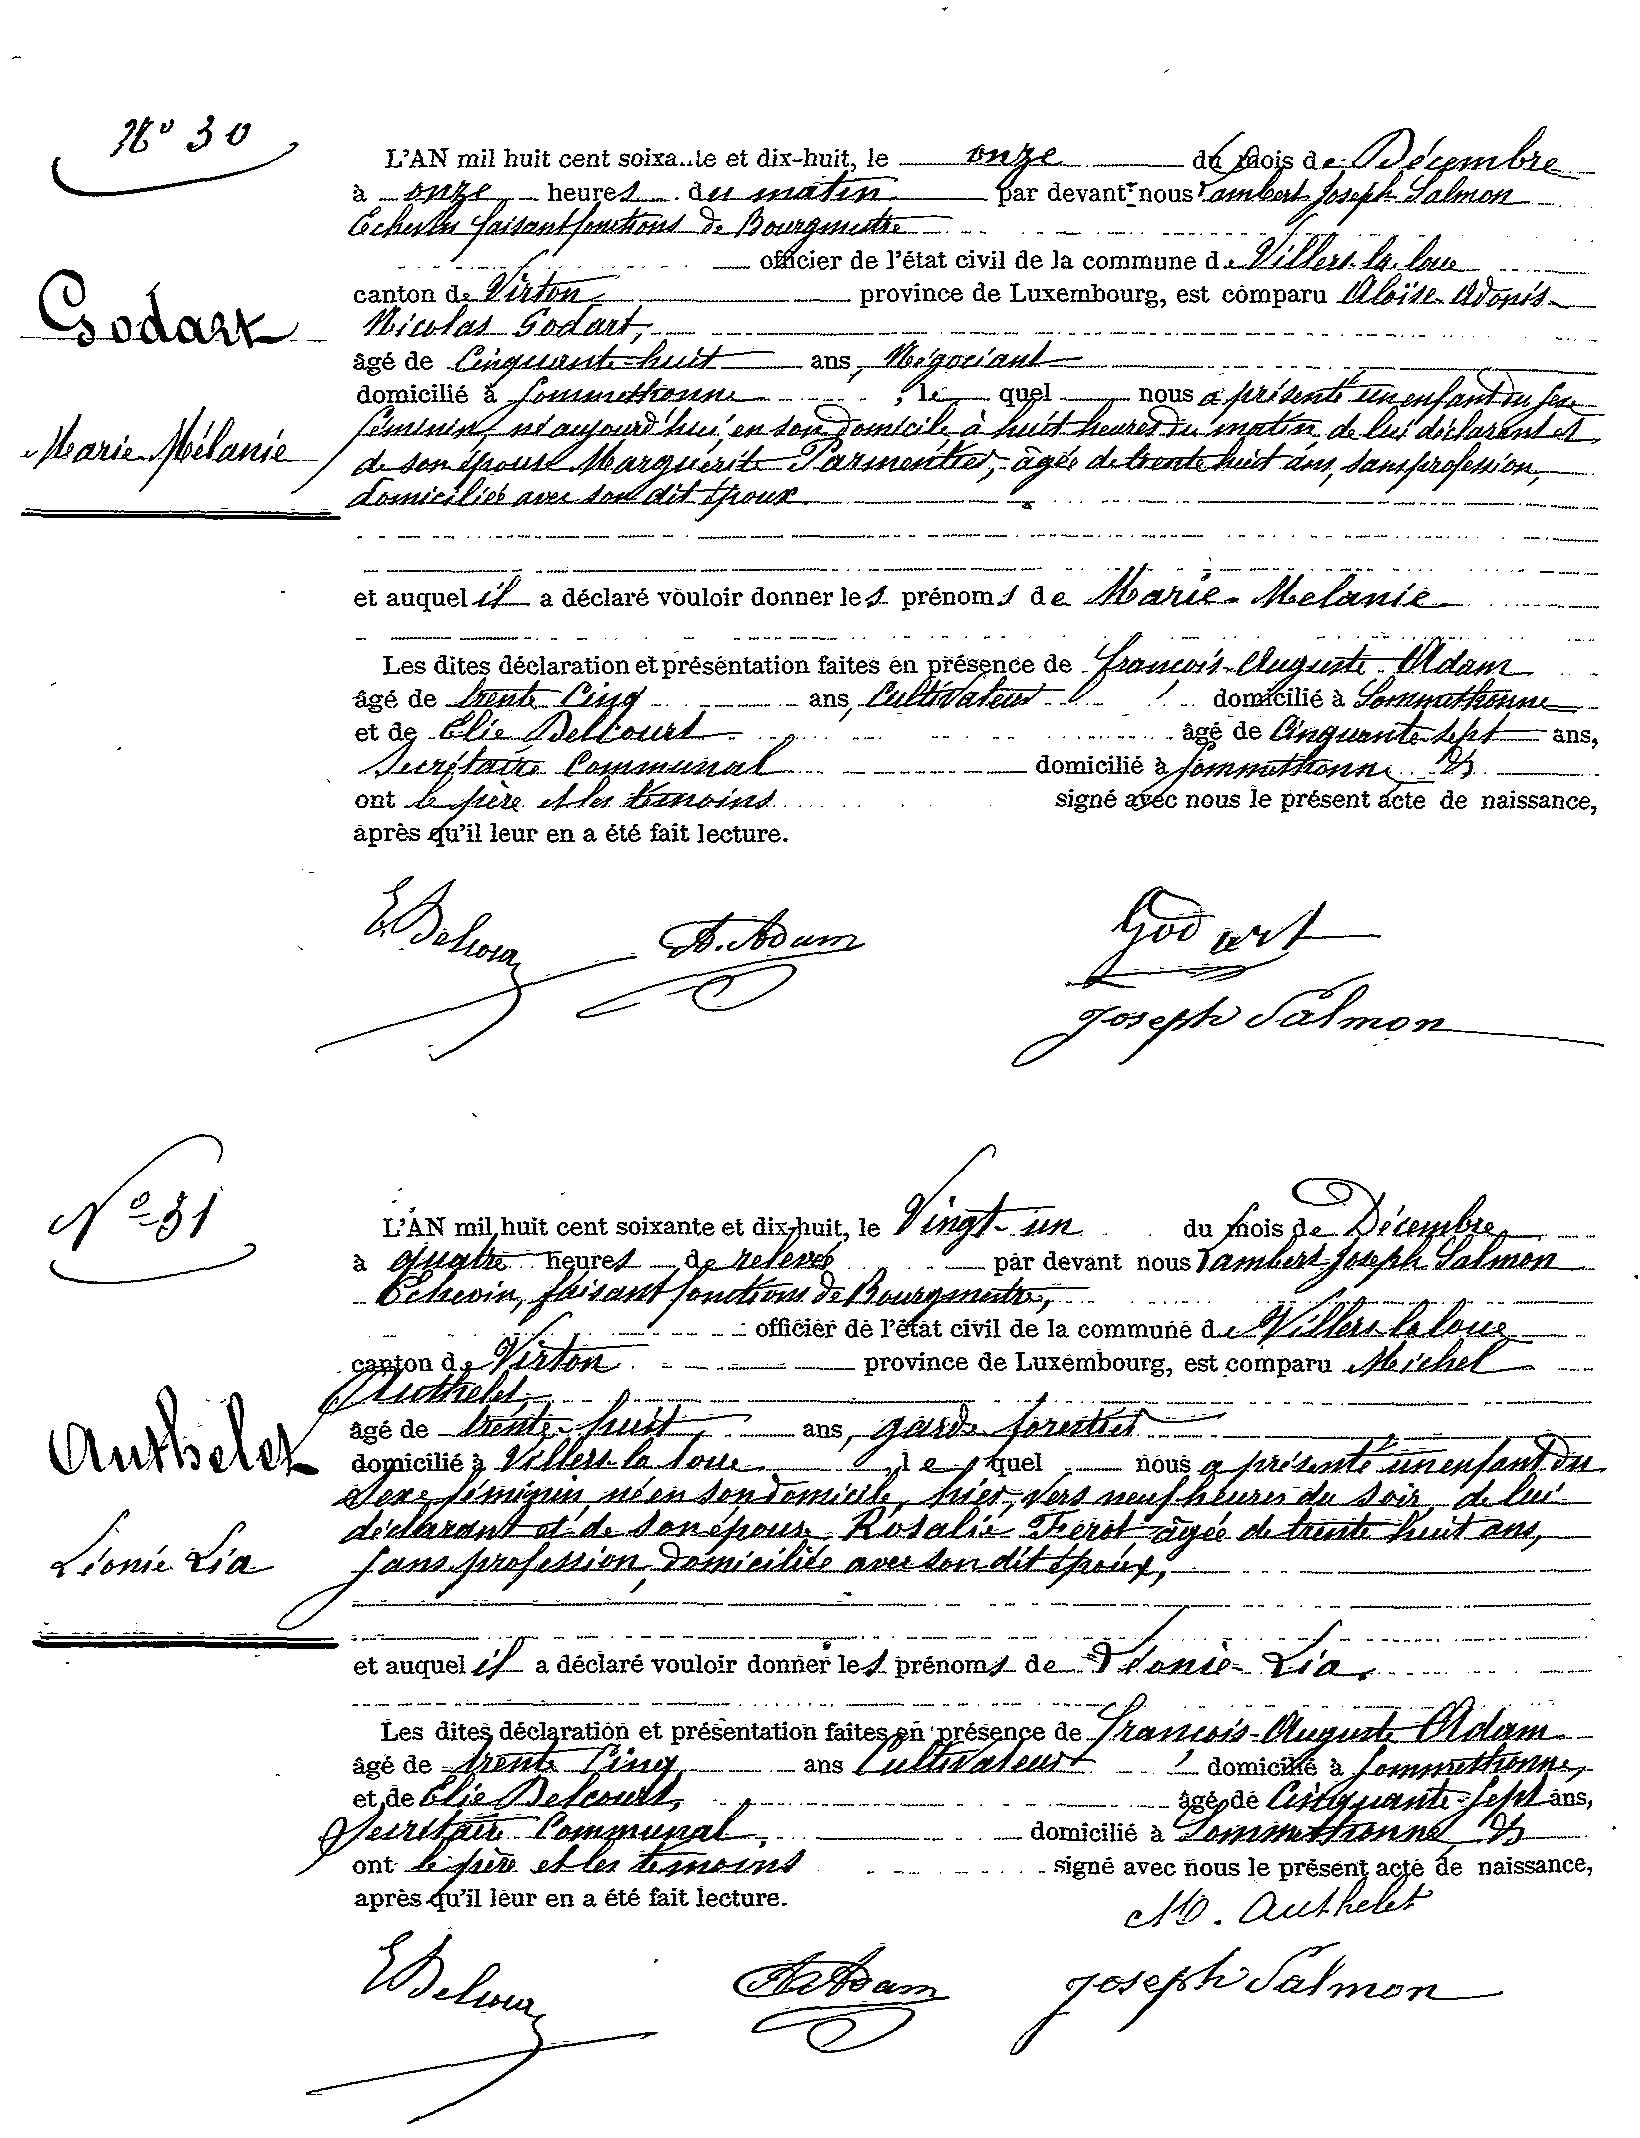 N° 30
L'AN mil huit cent soixante et dix-huit, le onze du mois de Décembre
à onze heures du matin par devant nous Lambert Joseph Salmon
Echevin faisant fonctions de Bourgmestre
officier de l'état civil de la commune de Villers-la-loue
canton de Virton, province de Luxembourg, est comparu Aloïse Adonis
Godart
Nicolas Godart,
âgé de Cinquante-huit ans, Négociant
domicilié à Sommethonne, le quel nous a présenté un enfant du sexe
féminin, né aujourd'hui, en son domicile à huit heures du matin, de lui déclarant et
Marie-Mélanie
de son épouse Marguérite Parmentier, âgée de trente huit ans, sans profession,
domiciliée avec son dit époux
et auquel il a déclaré vouloir donner les prénoms de Marie-Melanie
Les dites déclaration et présentation faites en présence de François-Auguste Adam
âgé de trente Cinq ans, Cultivateur domicilié à Sommethonne
et de Elie Delcourt âgé de Cinquante-sept ans,
Secrétaire Communal domicilié à Sommethonne &
ont le père et les témoins signé avec nous le présent acte de naissance,
après qu'il leur en a été fait lecture.
E Delcour A. Adam Godart
Joseph Salmon
N° 31
L'AN mil huit cent soixante et dix-huit, le Vingt-un du mois de Décembre
à quatre heures de relevée par devant nous Lambert Joseph Salmon
Echevin, faisant fonctions de Bourgmestre,
officier de l'état civil de la commune de Villers-la loue
canton de Virton province de Luxembourg, est comparu Michel
Authelet
âgé de trente-huit ans, garde forestier
Authelet
domicilié à Villers-la loue le quel nous a présenté un enfant du
Sexe féminin né en son domicile, hier, vers neuf heures du soir, de lui
déclarant et de son épouse Rosalie Feret âgée de trente huit ans,
Léonie Lia
sans profession, domiciliée avec son dit époux,
et auquel il a déclaré vouloir donner les prénoms de Léonie-Lia.
Les dites déclaration et présentation faites en présence de François-Auguste Adam
âgé de trente Cinq ans Cultivateur domicilié à Sommethonne,
et de Elie Delcourt, âgé de Cinquante-sept ans,
Secrétaire Communal, domicilié à Sommethonne &
ont le père et les témoins signé avec nous le présent acte de naissance,
après qu'il leur en a été fait lecture.
M. Authelet
E Delcour A. Adam Joseph Salmon